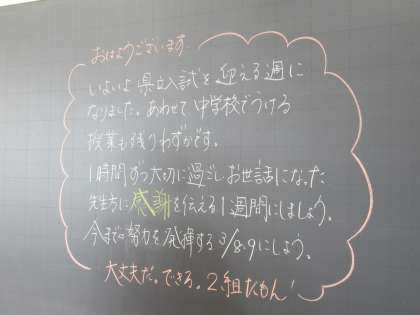 おはようございます.
いよいよ県立入試を迎える週に
なりました。あわせて中学校でうける
授業も残りわずかです。
1時間ずつ大切に過ごしお世話になった
先生方に感謝を伝える1週間にしましょう。
今までの努力を発揮する3/8.9にしよう。
大丈夫だ。できる。2組だもん!